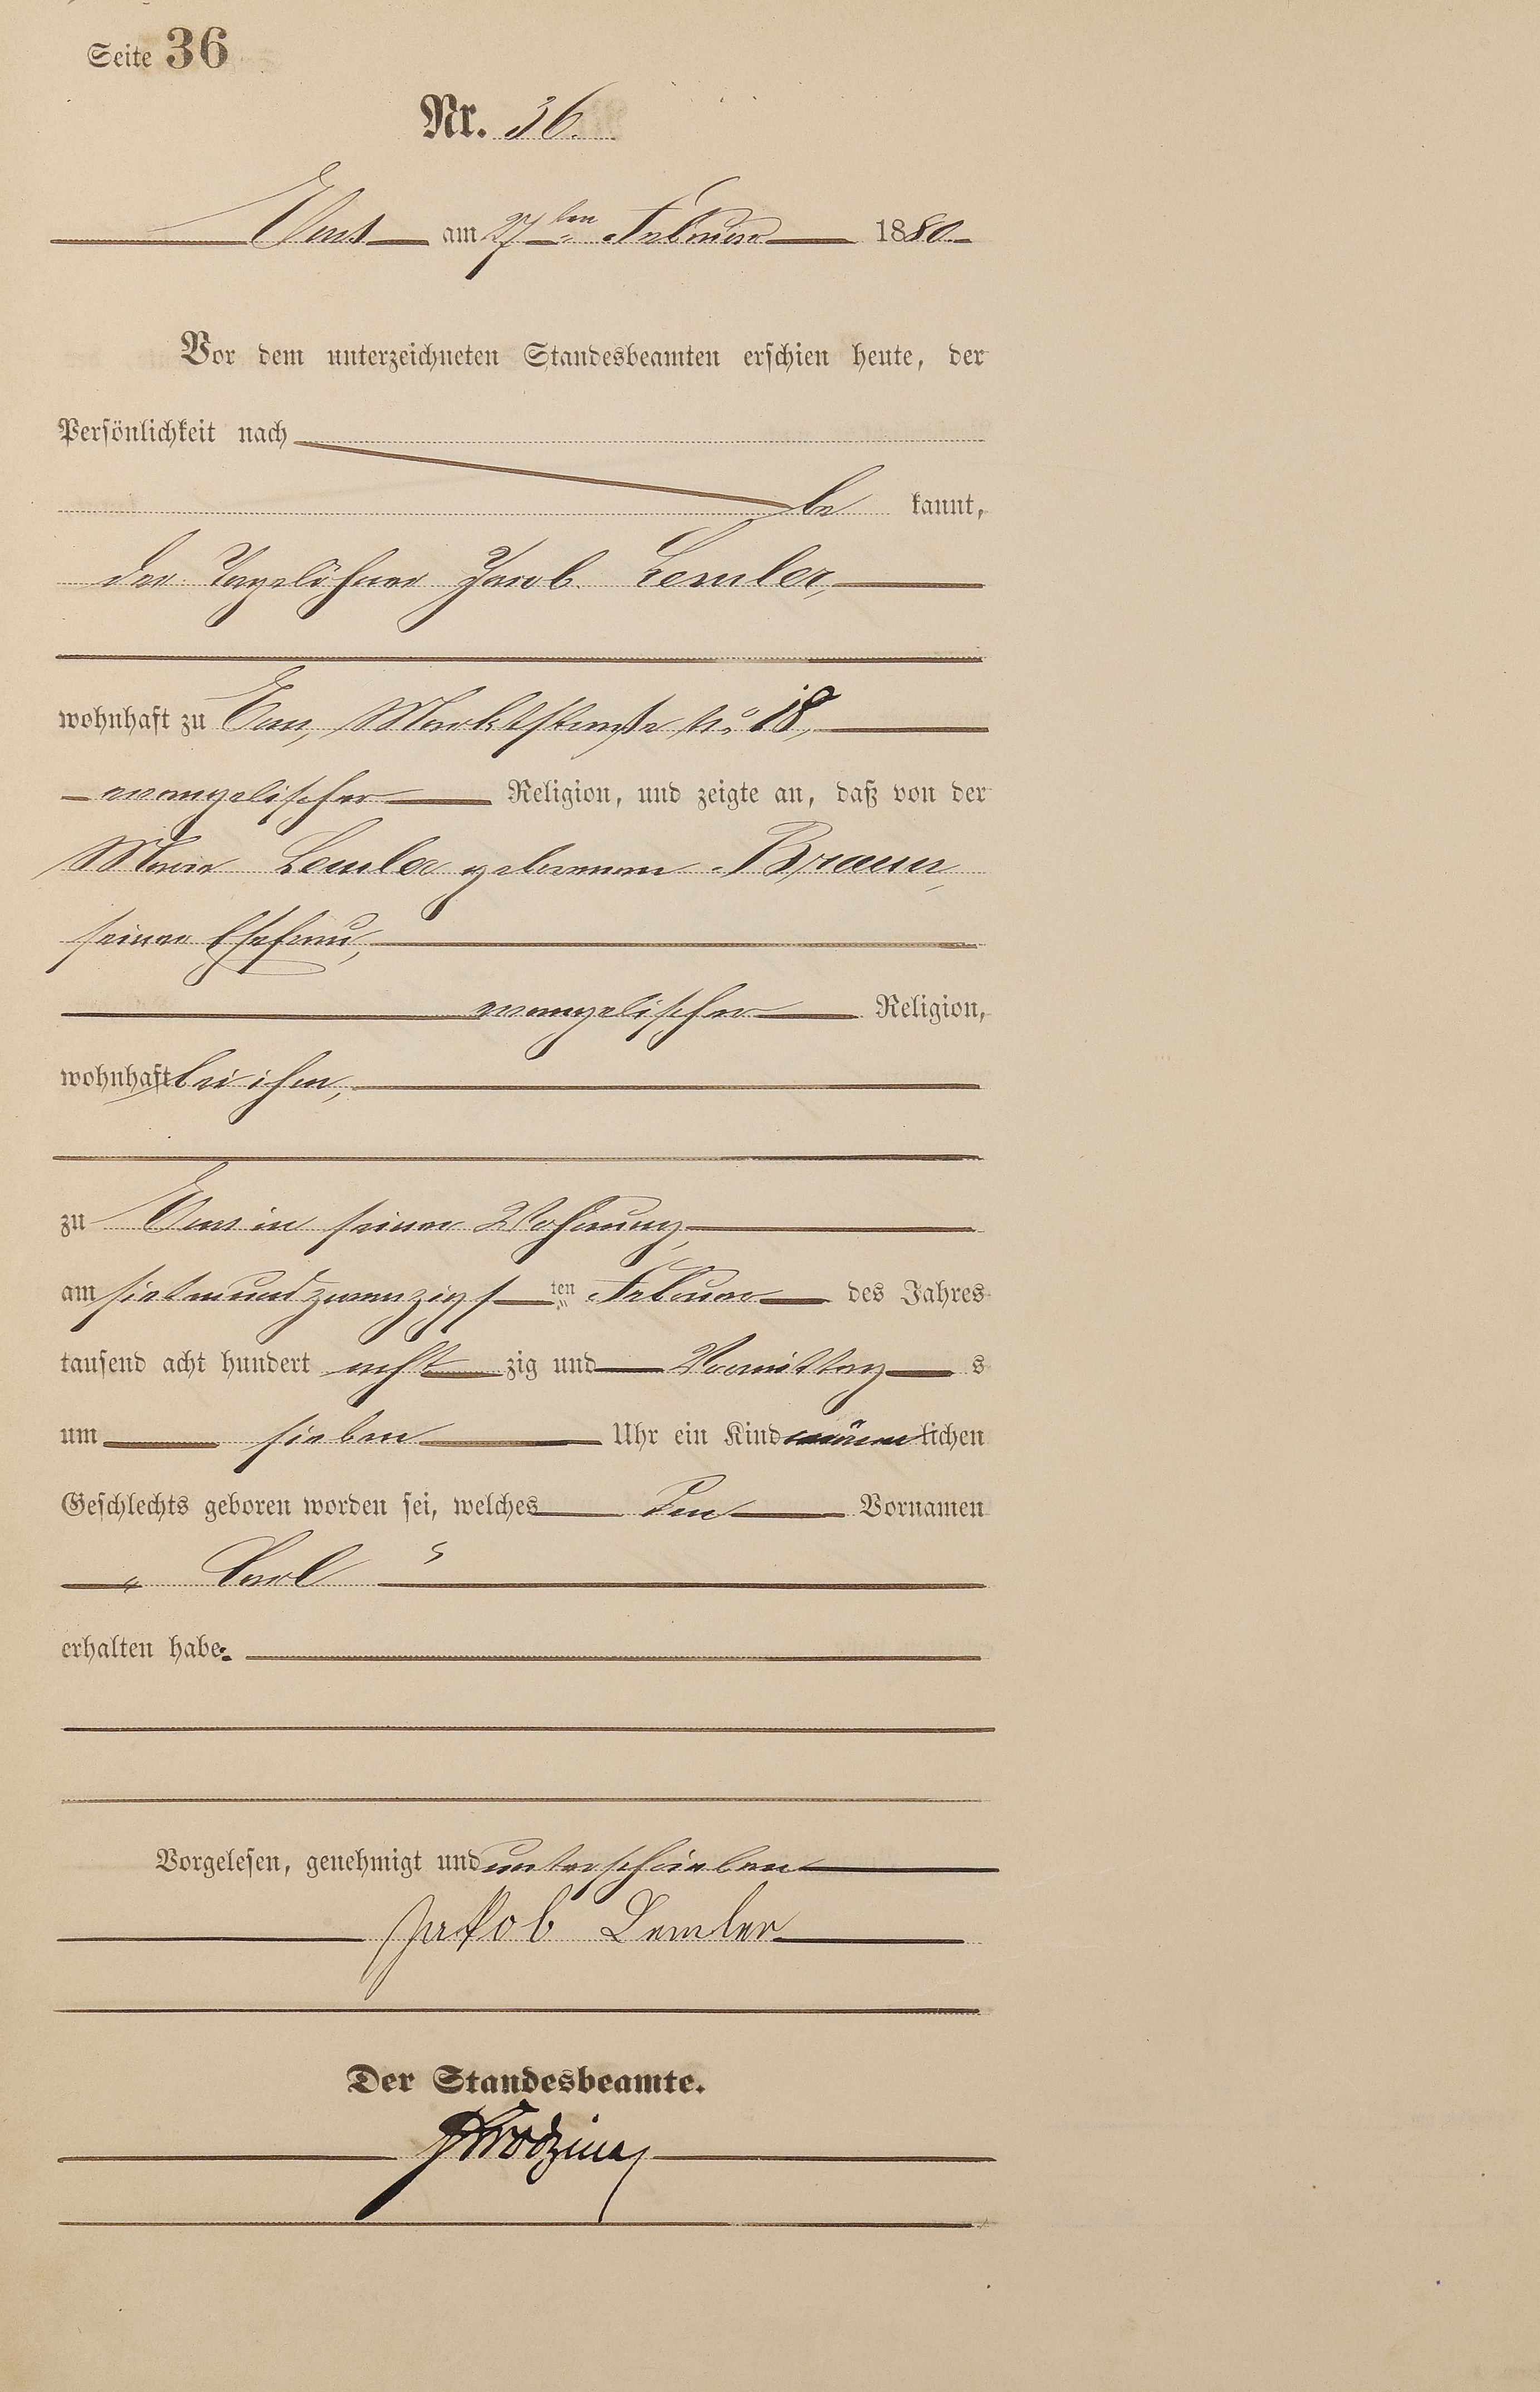 Seite 36
Nr. 36.
Ems am 27ten Februar 1880.
Vor dem unterzeichneten Standesbeamten erschien heute, der
Persönlichkeit nach
be kannt,
der Tagelöhner Jacob Lemler,
wohnhaft zu Ems, Marktstraße No. 18,
evangelischer Religion, und zeigte an, daß von der
Maria Lemler geborenen Braun,
seiner Ehefrau,
evangelischer Religion,
wohnhaft bei ihm,
zu Ems in seiner Wohnung,
am siebenundzwanzigsten Februar des Jahres
tausend acht hundert achtzig und Vormittags
um sieben Uhr ein Kind männlichen
Geschlechts geboren worden sei, welches den Vornamen
„Carl“
erhalten habe.
Vorgelesen, genehmigt und unterschrieben
Jakob Lemler
Der Standesbeamte.